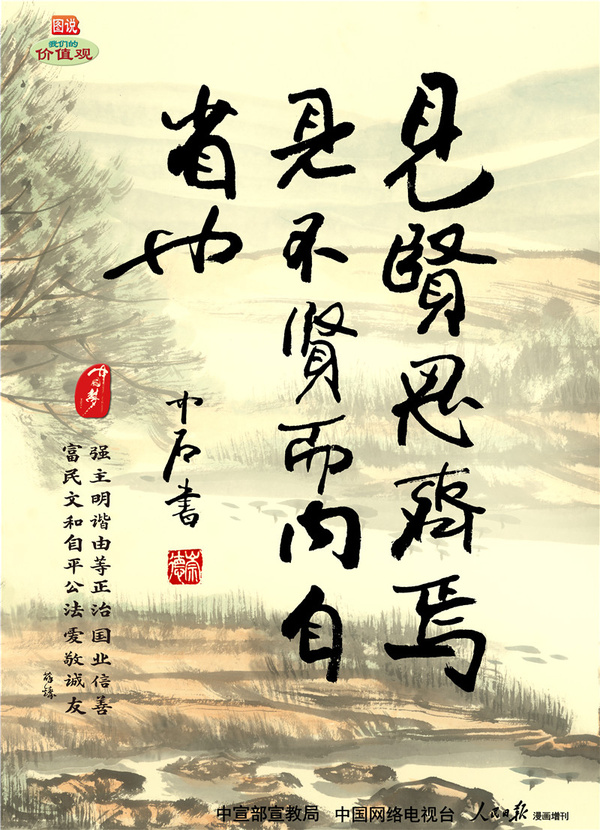 图说
我们的
价值观
見賢思齊焉
見不賢而内自
省也
中石書
崇德
中国梦
富强
民主
文明
和谐
自由
平等
公正
法治
爱国
敬业
诚信
友善
中宣部宣教局 中国网络电视台 人民日报 漫画增刊